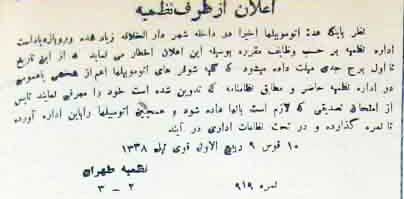 اعلان از طرف نظمیه
نظر باینکه عده اتومبیلها اخیرا در داخله شهر دار الخلافه زیاد شده و روبازدیاد است
اداره نظمیه بر حسب وظایف مقرره بوسیله این اعلان اخطار می نماید که از این تاریخ
تا اول برج جدی مهلت داده میشود که کلیه شوفر های اتومبیلها اعم از شخصی یا عمومی
در اداره نظمیه حاضر و مطابق نظامنامه که تدوین شده است خود را معرفی نمایند تا پس
از امتحان تصدیقی که لازم است بانها داده شود و همچنین اتومبیلها را باین اداره آورده
تا نمره گذارده و در تحت نظامات اداری در آیند
۱۰ قوس ۹ ربیع الاول قوی ئیل ۱۳۳۸
نظمیه طهران
نمره ۹۱۹ ۲ – ۳